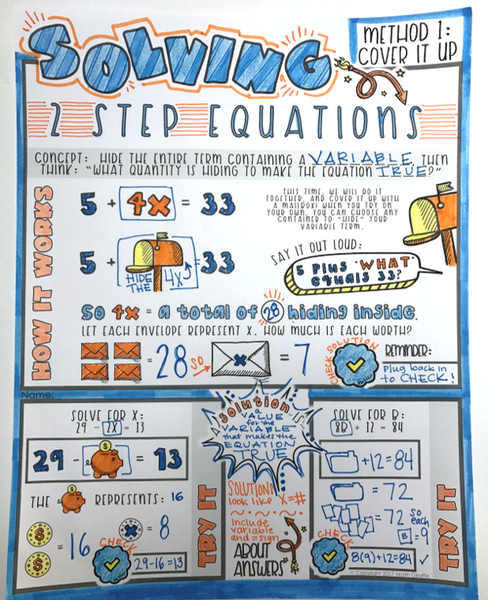 SOLVING
METHOD 1:
COVER IT UP
2 STEP EQUATIONS
CONCEPT: HIDE THE ENTIRE TERM CONTAINING A VARIABLE, THEN
THINK: "WHAT QUANTITY IS HIDING TO MAKE THE EQUATION TRUE?"
HOW IT WORKS
5 + 4x = 33
THIS TIME, WE WILL DO IT
TOGETHER, AND COVER IT UP WITH
A MAILBOX! WHEN YOU TRY ON
YOUR OWN, YOU CAN CHOOSE ANY
CONTAINER TO "HIDE" YOUR
VARIABLE TERM.
5 + HIDE THE 4x = 33
SAY IT OUT LOUD:
5 plus "WHAT"
equals 33?
So 4x = a total of 28 hiding inside.
LET EACH ENVELOPE REPRESENT X. HOW MUCH IS EACH WORTH?
= 28 so x = 7
CHECK SOLUTION
REMINDER:
Plug back in
to CHECK!
Name:
SOLVE FOR X:
29 - 2X = 13
29 - = 13
THE REPRESENTS: 16
$
$
= 16
x = 8
CHECK
29-16=13
TRY IT
A solution is
a VALUE
for the
VARIABLE
that makes the
EQUATION
TRUE
SOLUTIONS
look like X=#
Include
variable
and = sign
ABOUT
ANSWERS
SOLVE FOR B:
8B + 12 = 84
+12=84
= 72
= 72 so each
B = 9
CHECK
8(9)+12=84 ✓
TRY IT
© Copyright 2017 Math Giraffe